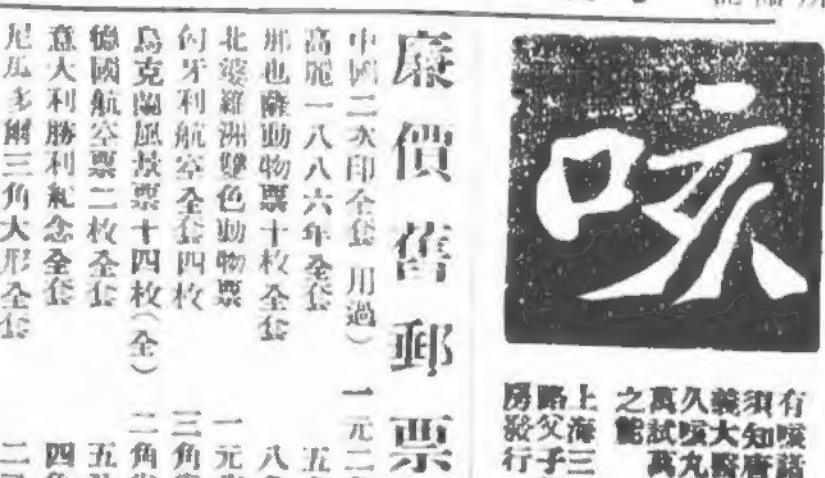 咳
有咳話
須知唐
義大醫
久咳丸
萬試萬
之能
上海三
路父子
房發行
廉價舊郵票
中國二次印全套(用過) 一元二
高麗一八八六年全套 五
那也薩動物票十枚全套 八
北婆羅洲雙色動物票 一元
匈牙利航空全套四枚 三角
烏克蘭風景票十四枚(全) 二角
德國航空票二枚全套 五
意大利勝利紀念全套 四角
尼瓜多爾三角大形全套 二